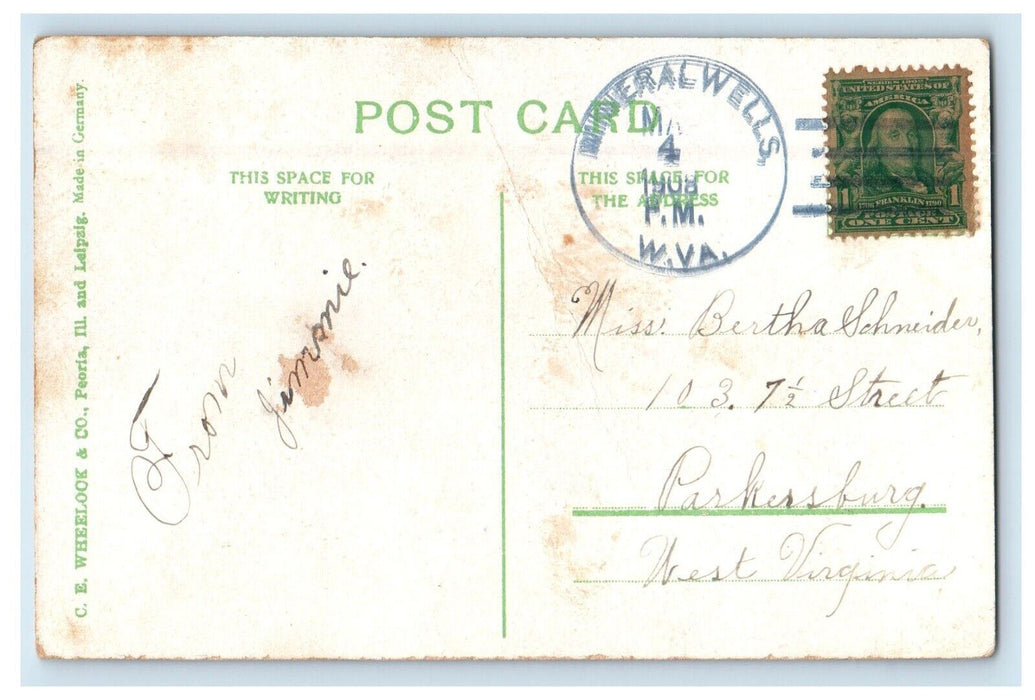 POST CARD
THIS SPACE FOR
WRITING
THIS SPACE FOR
THE ADDRESS
MINERALWELLS,
4
1908
P.M.
W.VA.
SERIES 1902
UNITED STATES OF
AMERICA
1 FRANKLIN 1790 1
POSTAGE
ONE CENT
From
Jimmie.
Miss. Bertha Schneider,
103. 7½ Street
Parkersburg.
West Virginia
C. E. WHEELOCK & CO., Peoria, Ill. and Leipzig. Made in Germany.